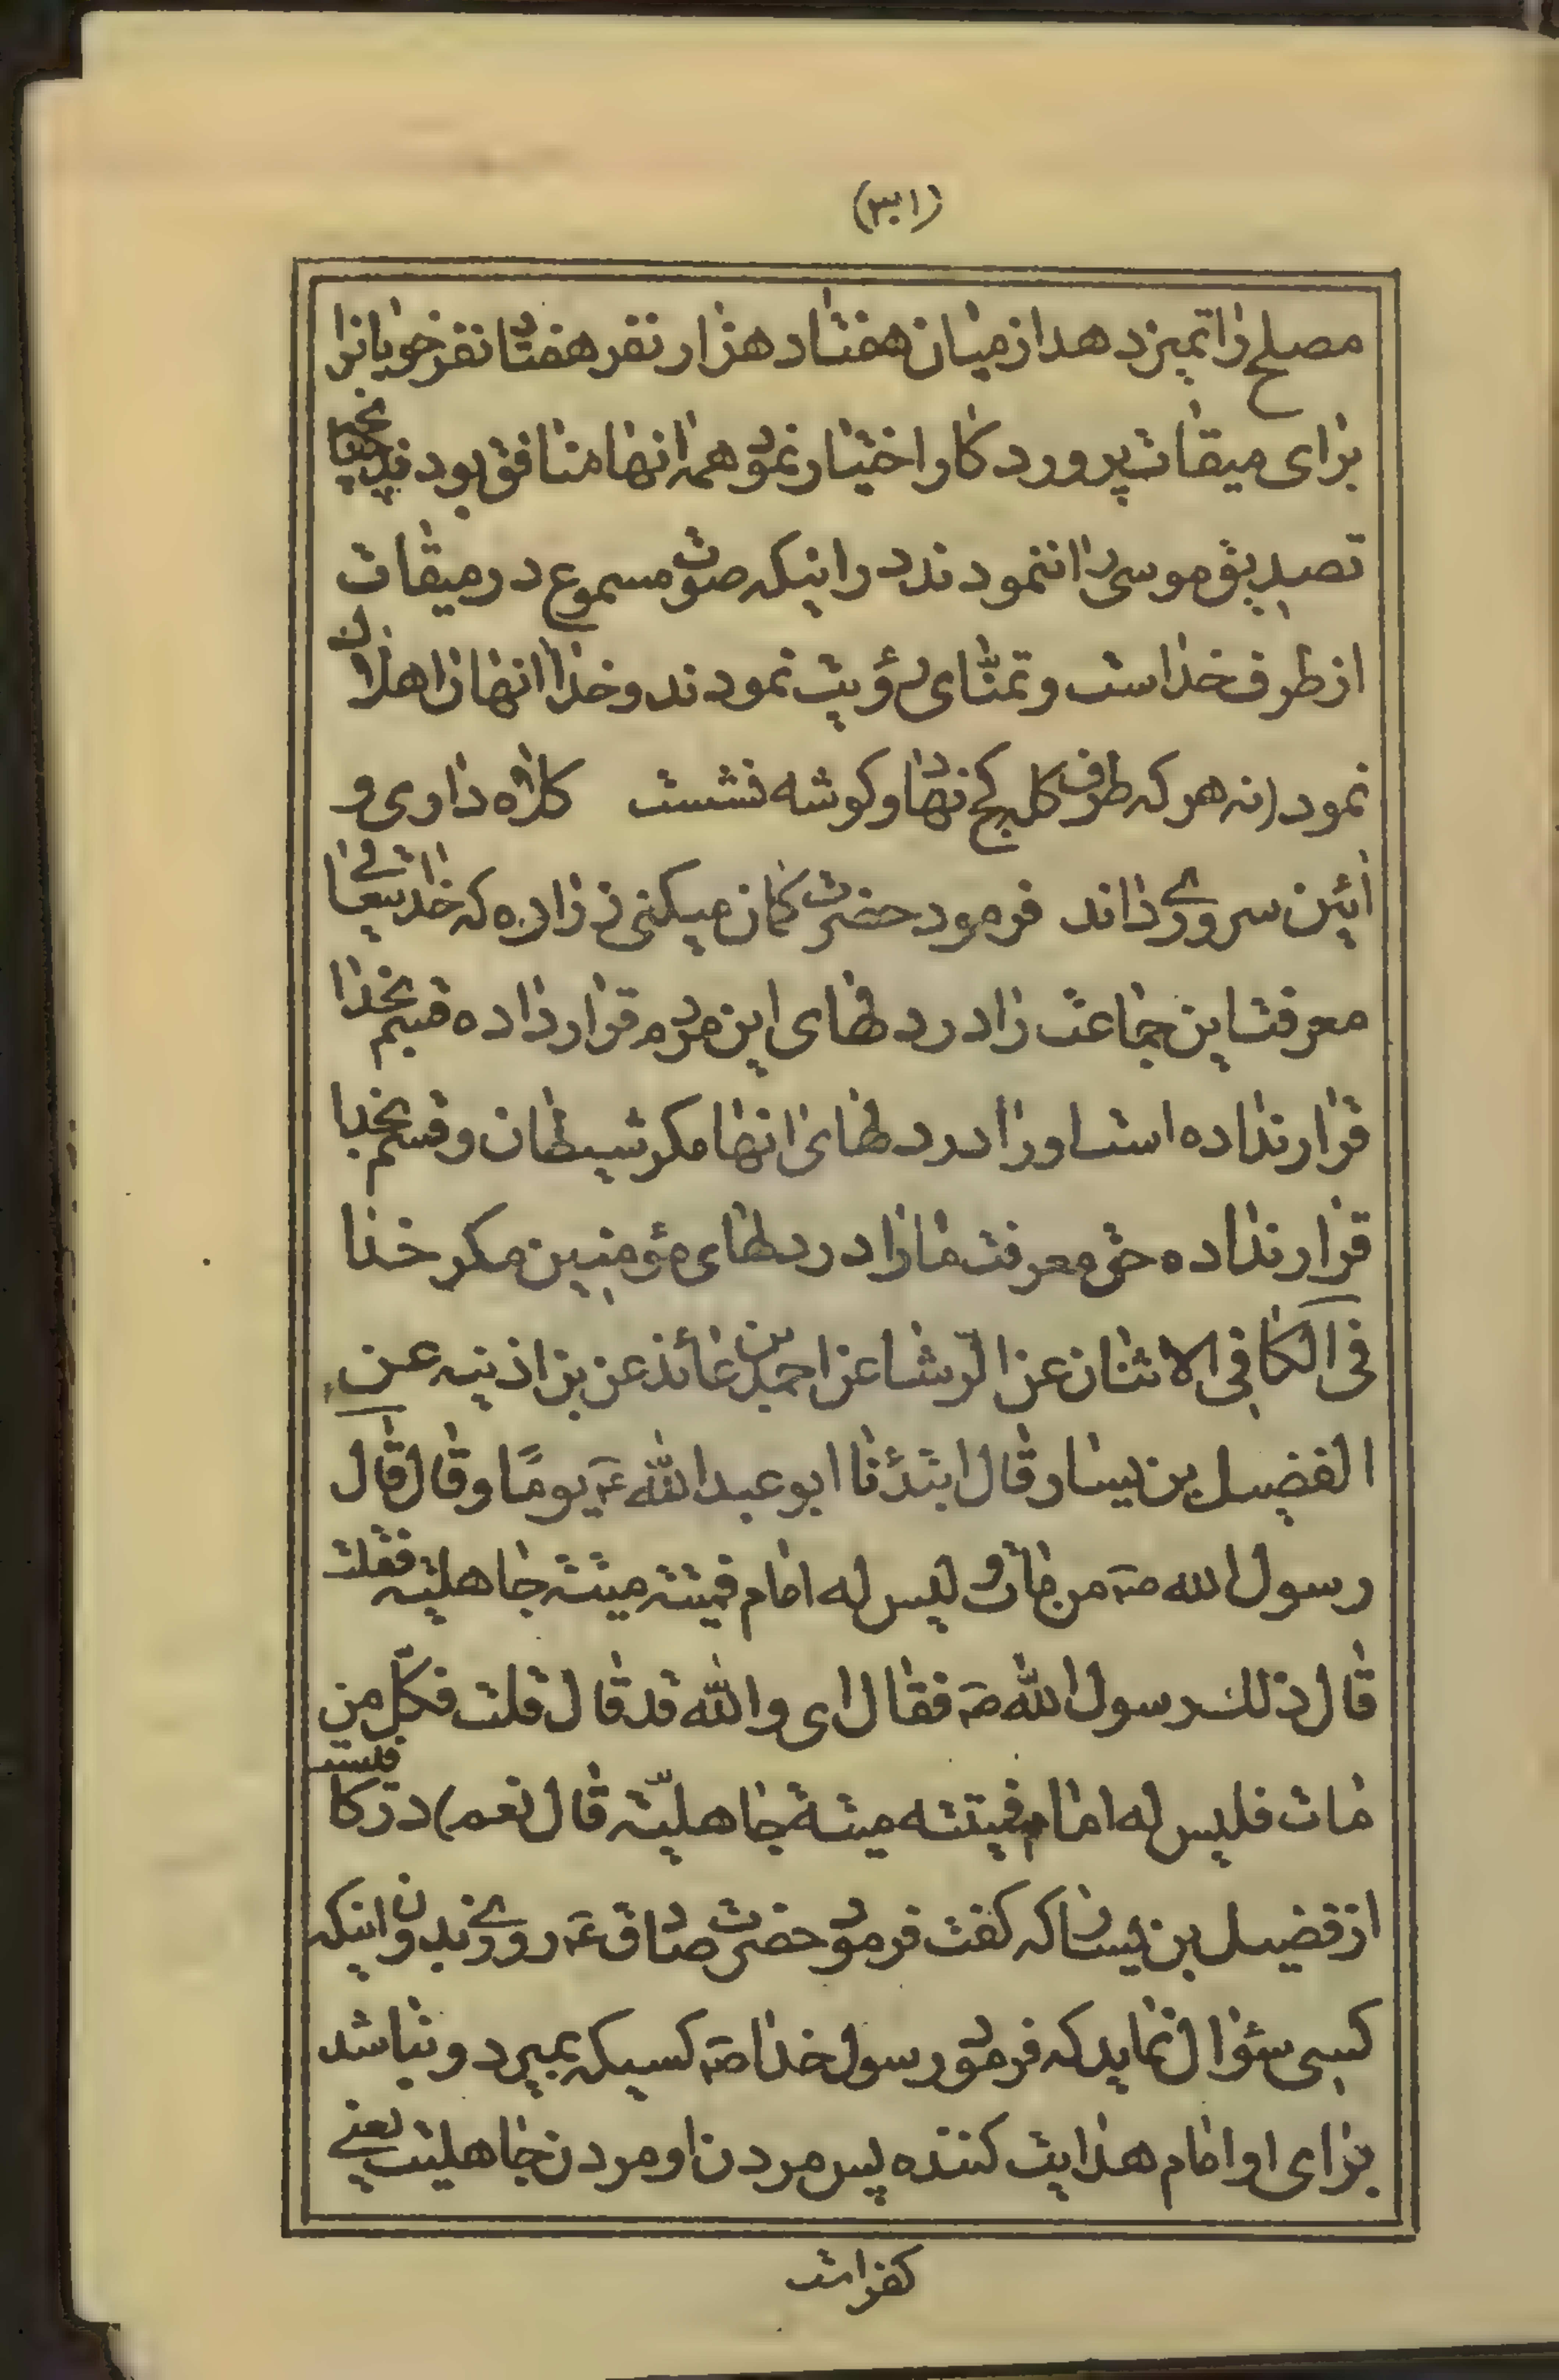 مصلح را تمیز دهد از میان هفتاد هزار نفر هفتاد نفر خوبانرا
برای میقات پروردکار اختیار نمود همه انها منافق بودند
تصدیق موسی را ننمودند در اینکه صوت مسموع در میقات
از طرف خدا است و تمنّای رؤیت نمودند و خدا انها را هلاک
نمود (نه هر که طرف کله کج نهاد و کوشه نشست کلاه داری و
ائین سروری داند فرمود حضرت کمان میکنی ای زراره که خدایتعالی
معرفت این جماعت را در دلهای این مردم قرار داده قسم بخدا
قرار نداده است او را در دلهای انها مکر شیطان و قسم بخدا
قرار نداده حق معرفت ما را در دلهای مؤمنین مکر خدا
فی الکافی الاثنان عن الوشا عن احمد بن عائذ عن بن اذینه عن
الفضیل بن یسار قال ابتدئنا ابو عبد الله ع یومًا و قال قال
رسول الله ص من مات و لیس له امام فمیتته میتة جاهلیته فقلت
قال ذلك رسول الله ص فقال ای و الله قد قال قلت فکلّ من
مات فلیس له امام فمیتته میتة جاهلیّته قال نعم) در کا
از فضیل بن یسار که کفت فرمود حضرت صادق ع روزی بدون اینکه
کسی سؤال نماید که فرمود رسول خدا ص کسیکه بمیرد و نباشد
برای او امام هدایت کننده پس مردن او مردن جاهلیت یعنی
کفر است